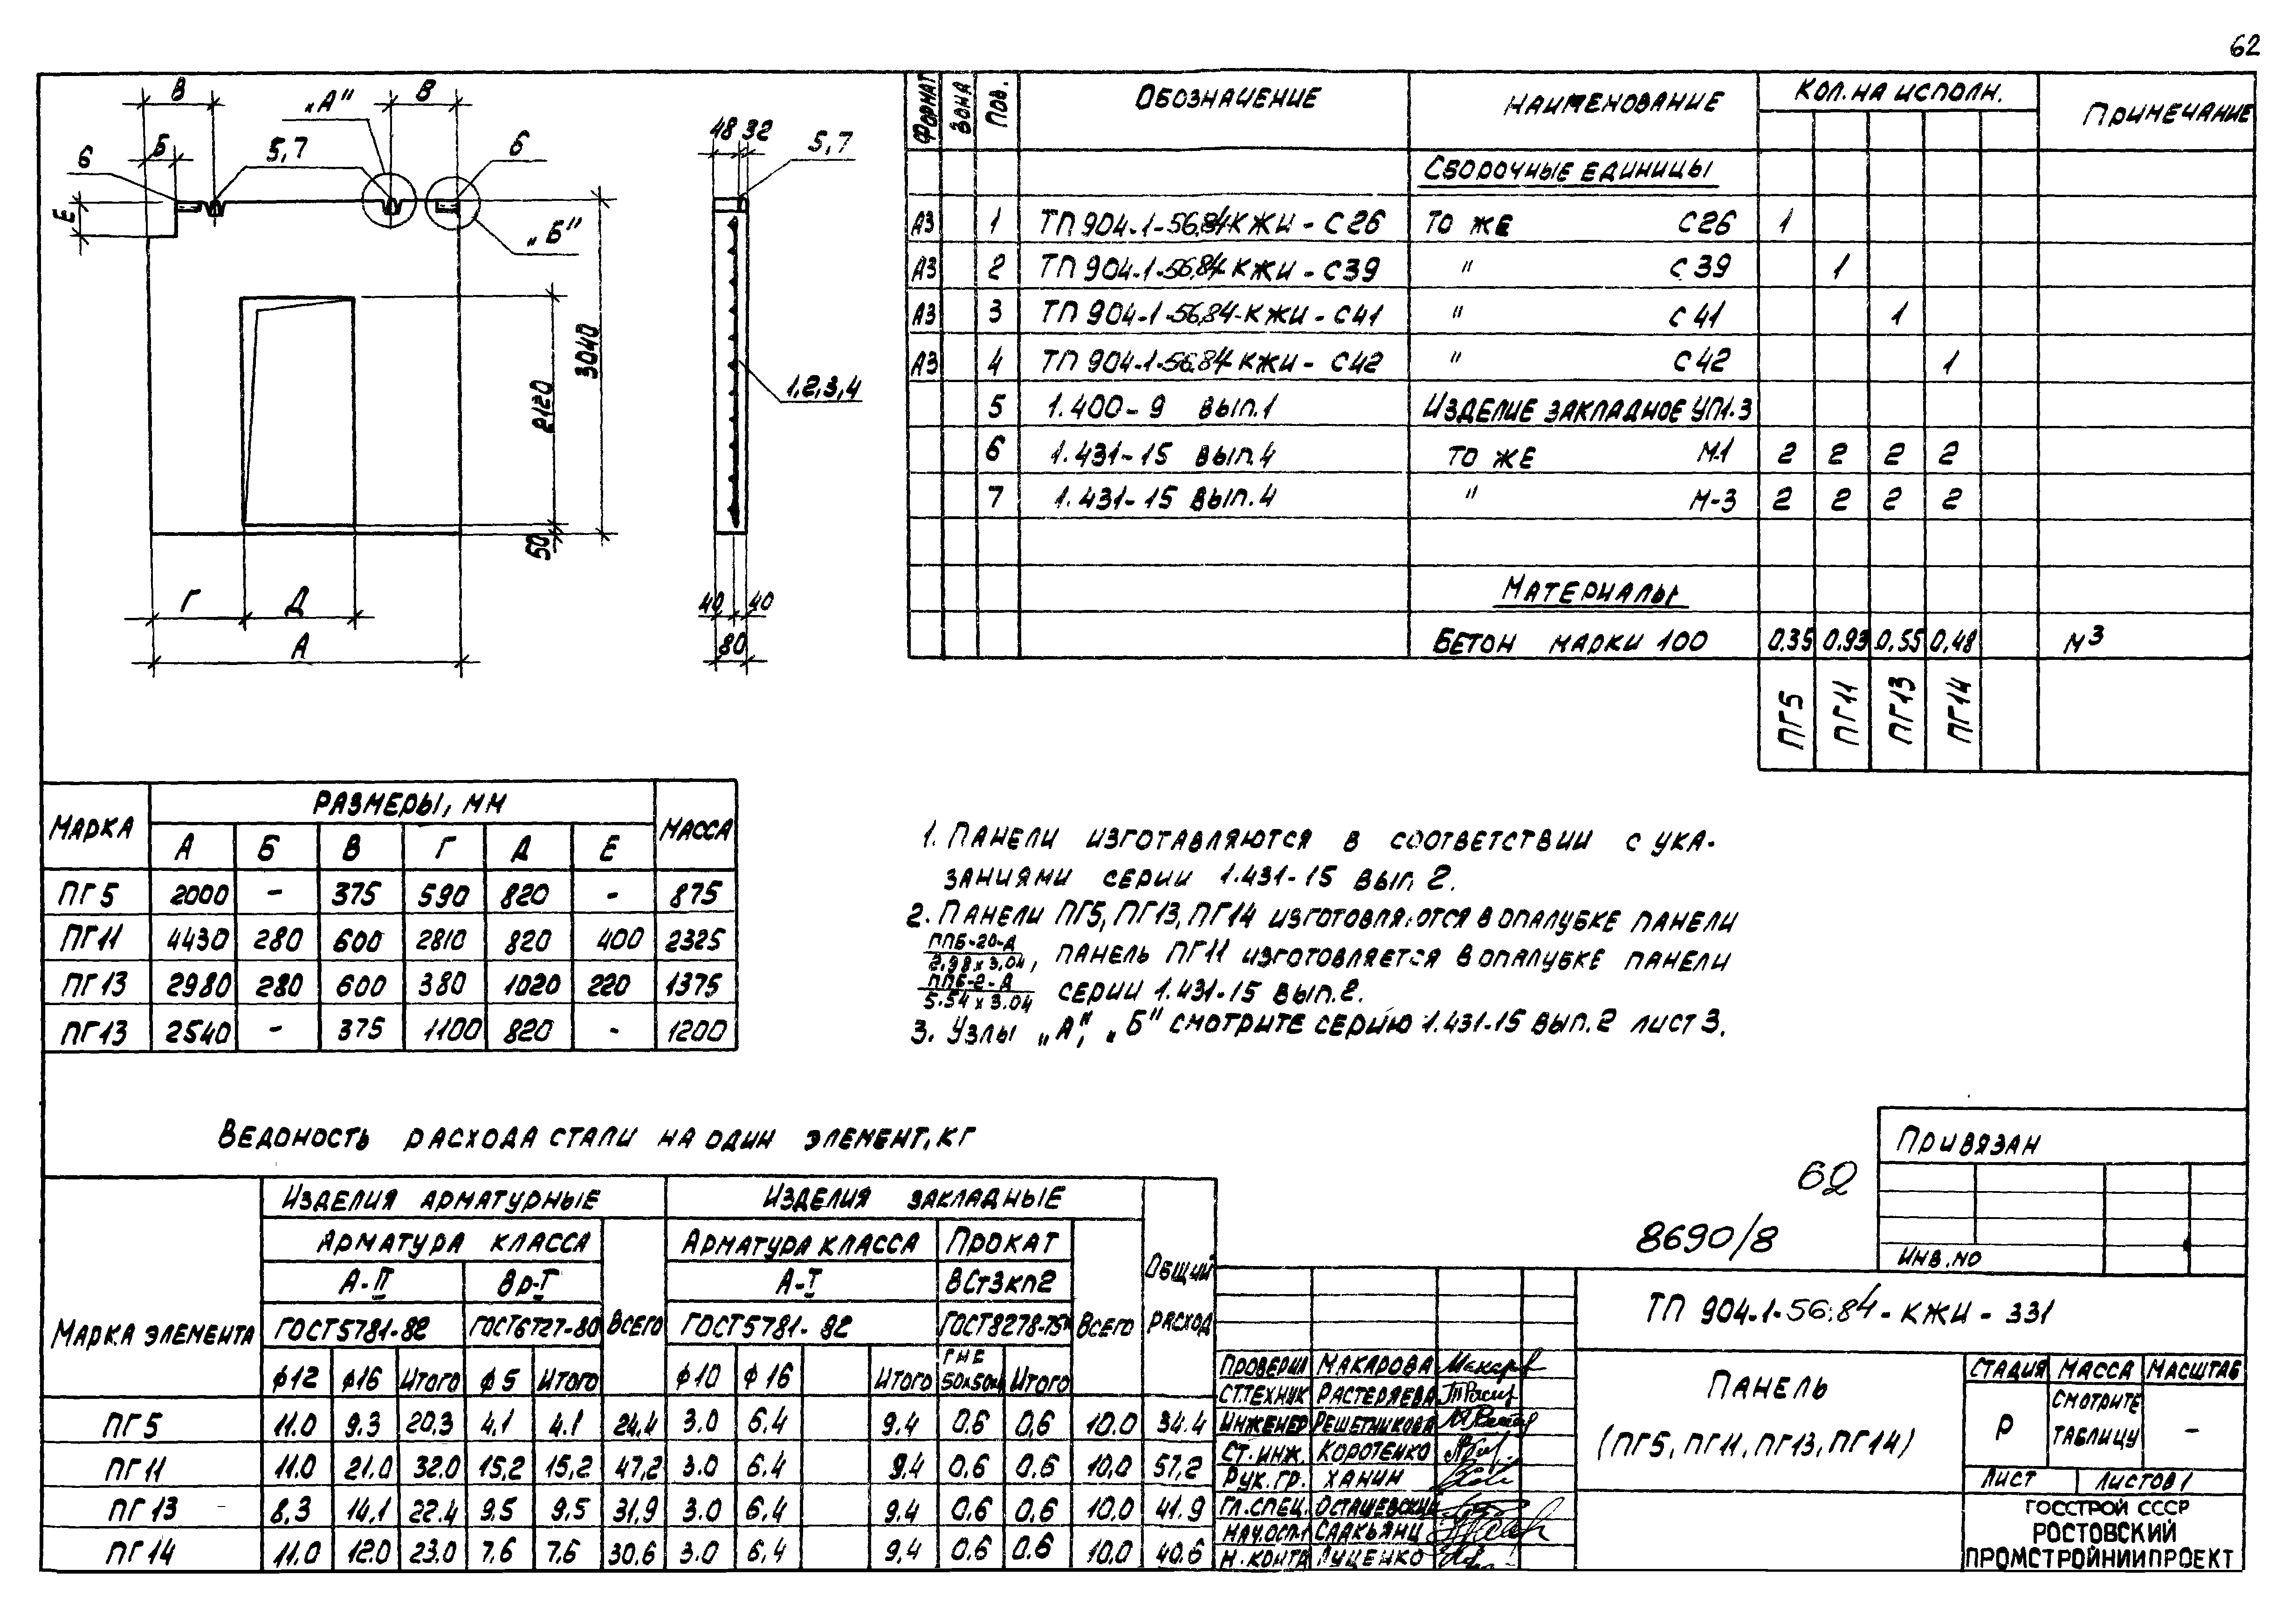 62
В
„А"
В
6
Б
5,7
6
Е
„Б"
2120
3040
50
Г
Д
А
48 32
5,7
1,2,3,4
40 40
80
Формат Зона Поз. Обозначение Наименование Кол. на исполн. Примечание
Сборочные единицы
А3 1 ТП 904-1-56.84 КЖИ - С26 То же С26 1
А3 2 ТП 904-1-56.84 КЖИ - С39 " С39 1
А3 3 ТП 904-1-56.84-КЖИ - С41 " С41 1
А3 4 ТП 904-1-56.84 КЖИ - С42 " С42 1
5 1.400-9 вып.1 Изделие закладное УП1.3
6 1.431-15 вып.4 То же М1 2 2 2 2
7 1.431-15 вып.4 " М-3 2 2 2 2
Материалы
Бетон марки 100 0.35 0.93 0.55 0.48 м3
ПГ5 ПГ11 ПГ13 ПГ14
Марка Размеры, мм Масса
А Б В Г Д Е
ПГ5 2000 - 375 590 820 - 875
ПГ11 4430 280 600 2810 820 400 2325
ПГ13 2980 280 600 380 1020 220 1375
ПГ13 2540 - 375 1100 820 - 1200
1. Панели изготавляются в соответствии с ука-
заниями серии 1.431-15 вып. 2.
2. Панели ПГ5, ПГ13, ПГ14 изготовляются в опалубке панели
ППБ-20-А
2.98 х 3.04, панель ПГ11 изготовляется в опалубке панели
ППБ-2-А
5.54 х 3.04 серии 1.431-15 вып. 2.
3. Узлы „А", „Б" смотрите серию 1.431-15 вып. 2 лист 3.
Ведомость расхода стали на один элемент, кг
Марка элемента Изделия арматурные Изделия закладные Общий расход
Арматура класса Всего Арматура класса Прокат Всего
А-II Вр-I А-I ВСт3кп2
ГОСТ5781-82 ГОСТ6727-80 ГОСТ5781-82 ГОСТ8278-75
ф12 ф16 Итого ф5 Итого ф10 ф16 Итого Итого
ПГ5 11.0 9.3 20,3 4,1 4.1 24,4 3.0 6.4 9,4 0,6 0,6 10.0 34.4
ПГ11 11.0 21.0 32.0 15,2 15,2 47,2 3.0 6.4 9,4 0,6 0,6 10,0 57,2
ПГ13 8,3 14,1 22.4 9,5 9,5 31,9 3.0 6,4 9,4 0,6 0,6 10,0 41.9
ПГ14 11,0 12.0 23.0 7,6 7,6 30,6 3.0 6,4 9,4 0.6 0.6 10,0 40.6
62
8690/8
Привязан
Инв. No
ТП 904-1-56.84-КЖИ-331
Проверил Макарова
Ст.техник Растеряева
Инженер Решетникова
Ст. инж. Коротенко
Рук. гр. Ханин
Гл. спец. Осташевский
Нач. осп. Саакьянц
Н. контр Луценко
Панель
(ПГ5, ПГ11, ПГ13, ПГ14)
Стадия Масса Масштаб
Р Смотрите таблицу -
Лист Листов 1
ГОССТРОЙ СССР
РОСТОВСКИЙ
ПРОМСТРОЙНИИПРОЕКТ